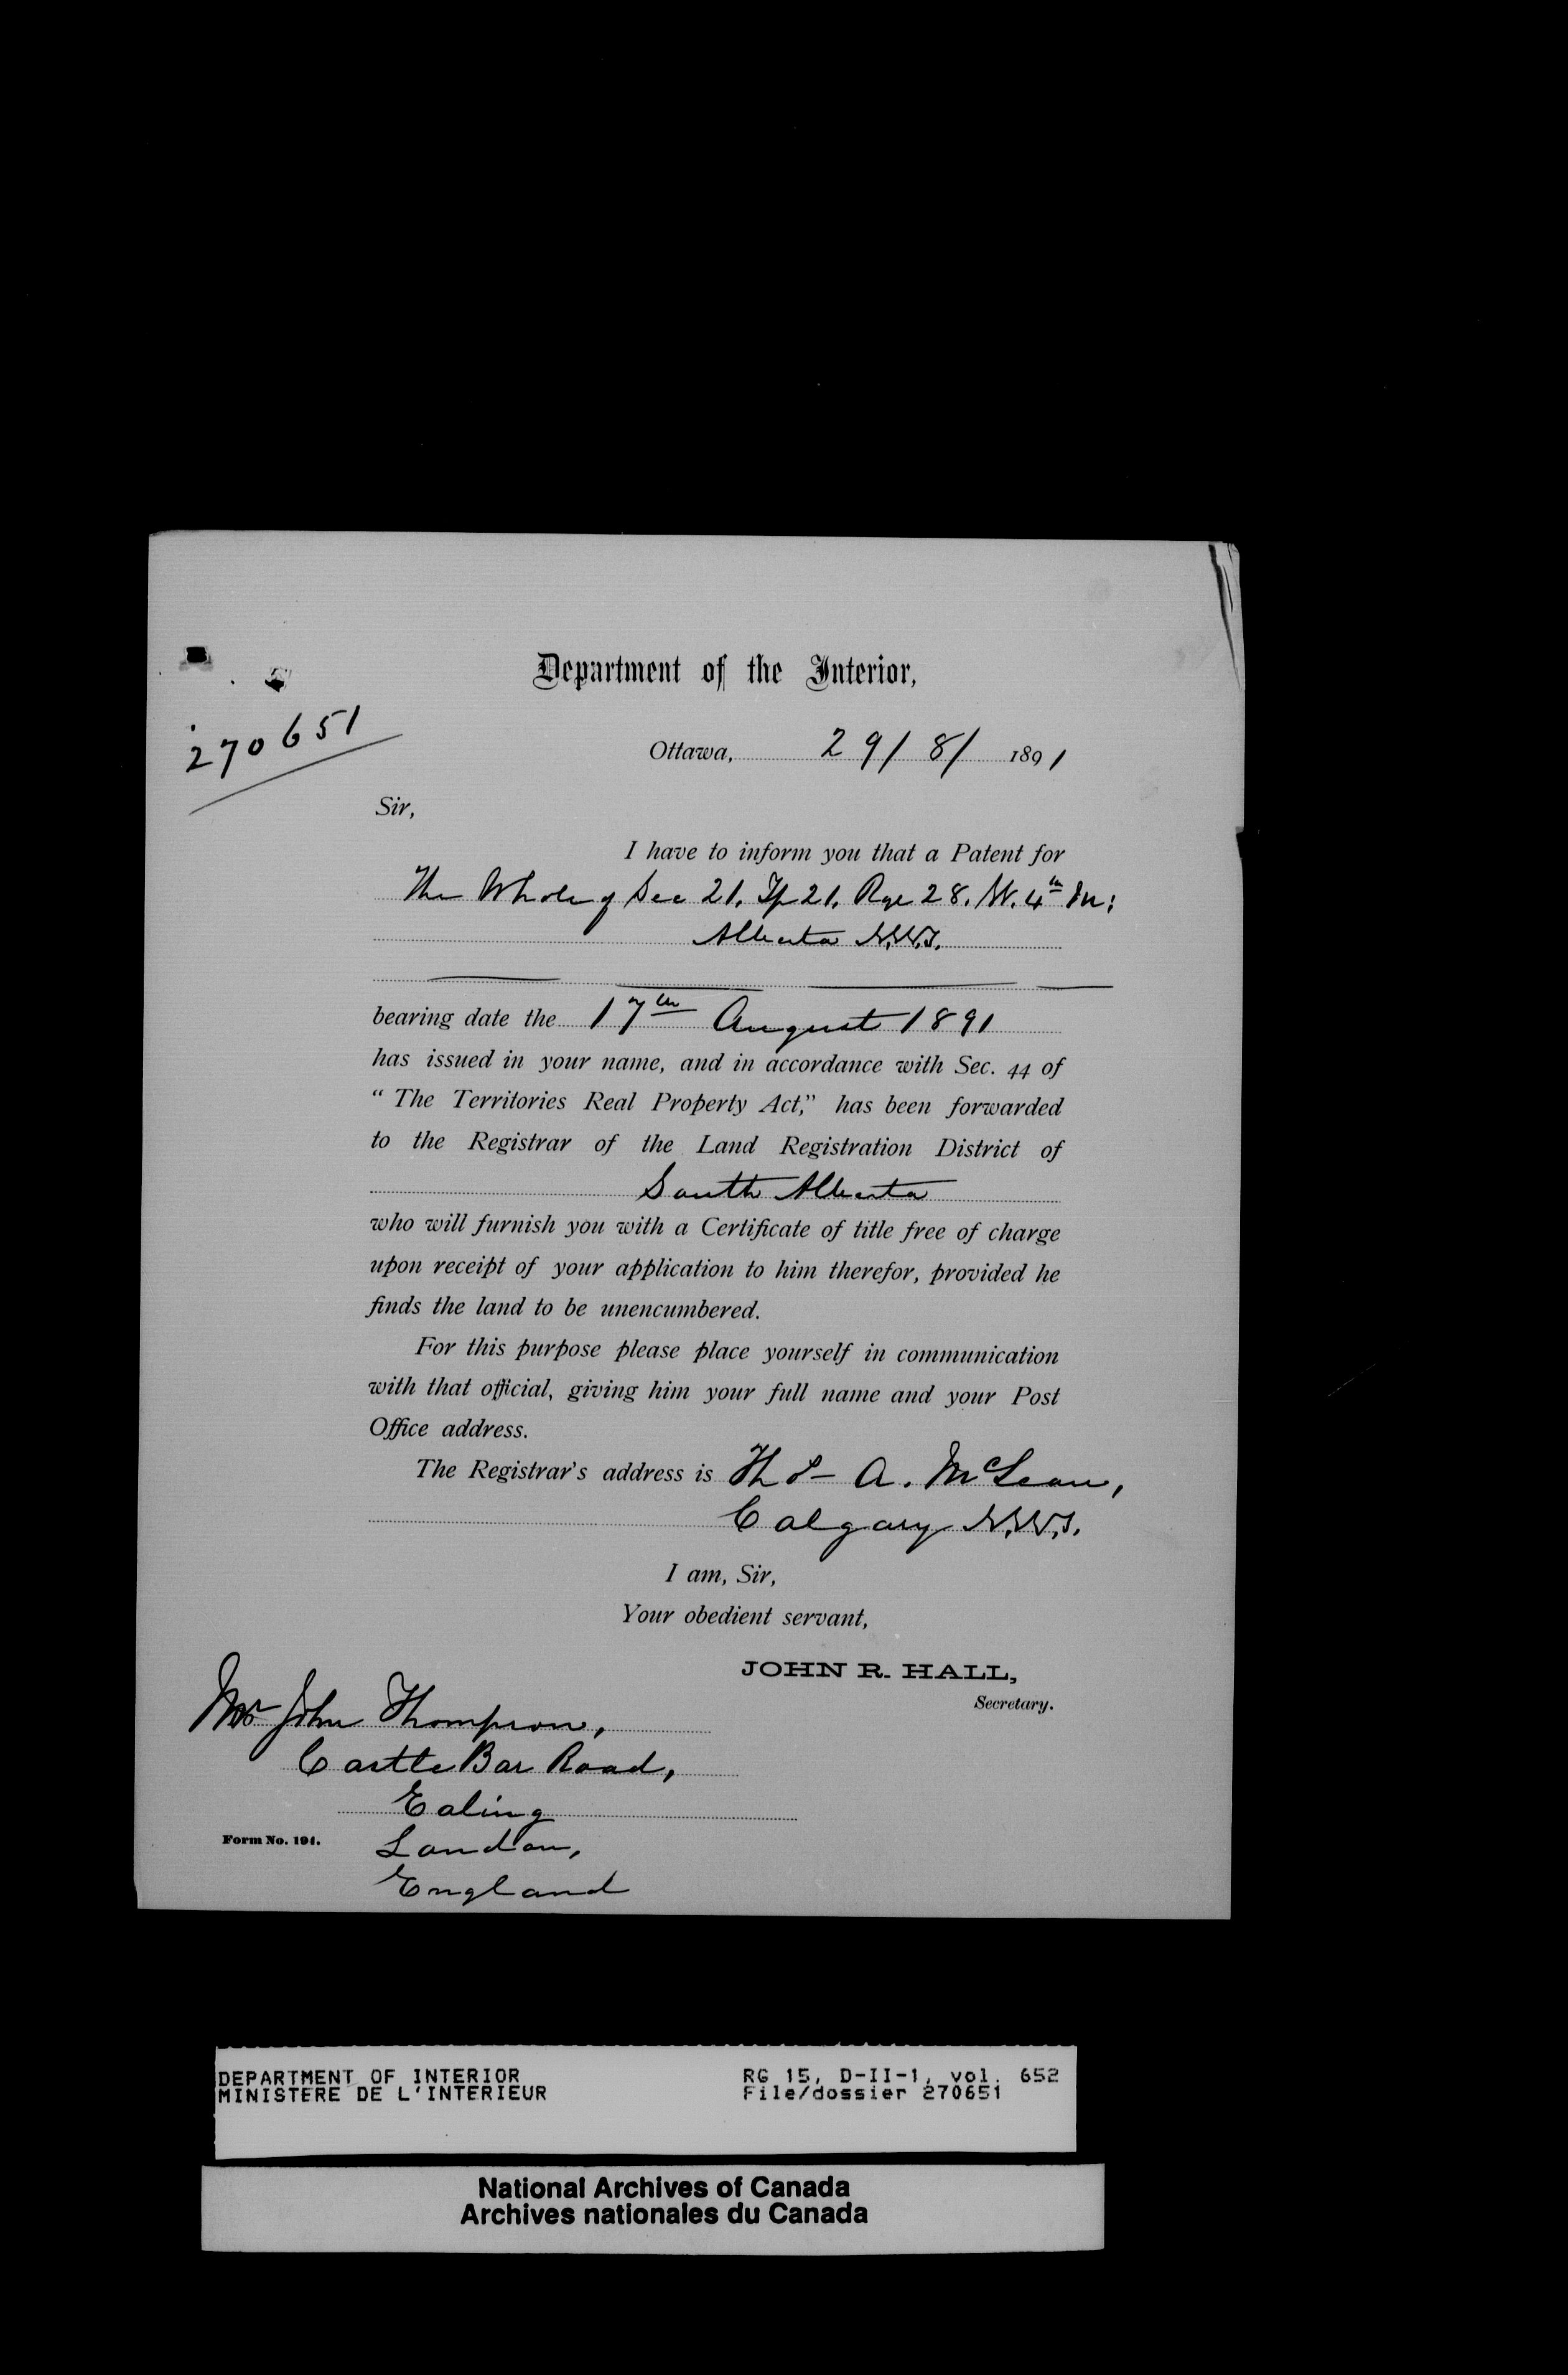 Department of the Interior,
270651
Ottawa, 29/8/ 1891
Sir,
I have to inform you that a Patent for
The Whole of Sec 21. Tp 21. Rge 28. W. 4th M:
Alberta N.W.T.
bearing date the 17th August 1891
has issued in your name, and in accordance with Sec. 44 of
“ The Territories Real Property Act,” has been forwarded
to the Registrar of the Land Registration District of
South Alberta
who will furnish you with a Certificate of title free of charge
upon receipt of your application to him therefor, provided he
finds the land to be unencumbered.
For this purpose please place yourself in communication
with that official, giving him your full name and your Post
Office address.
The Registrar's address is A. McLean,
Calgary N.W.T.
I am, Sir,
Your obedient servant,
JOHN R. HALL,
Secretary.
John Thompson,
Castle Bar Road,
Ealing
Form No. 194.
London,
England
DEPARTMENT OF INTERIOR RG 15, D-II-1, vol. 652
MINISTERE DE L'INTERIEUR File/dossier 270651
National Archives of Canada
Archives nationales du Canada